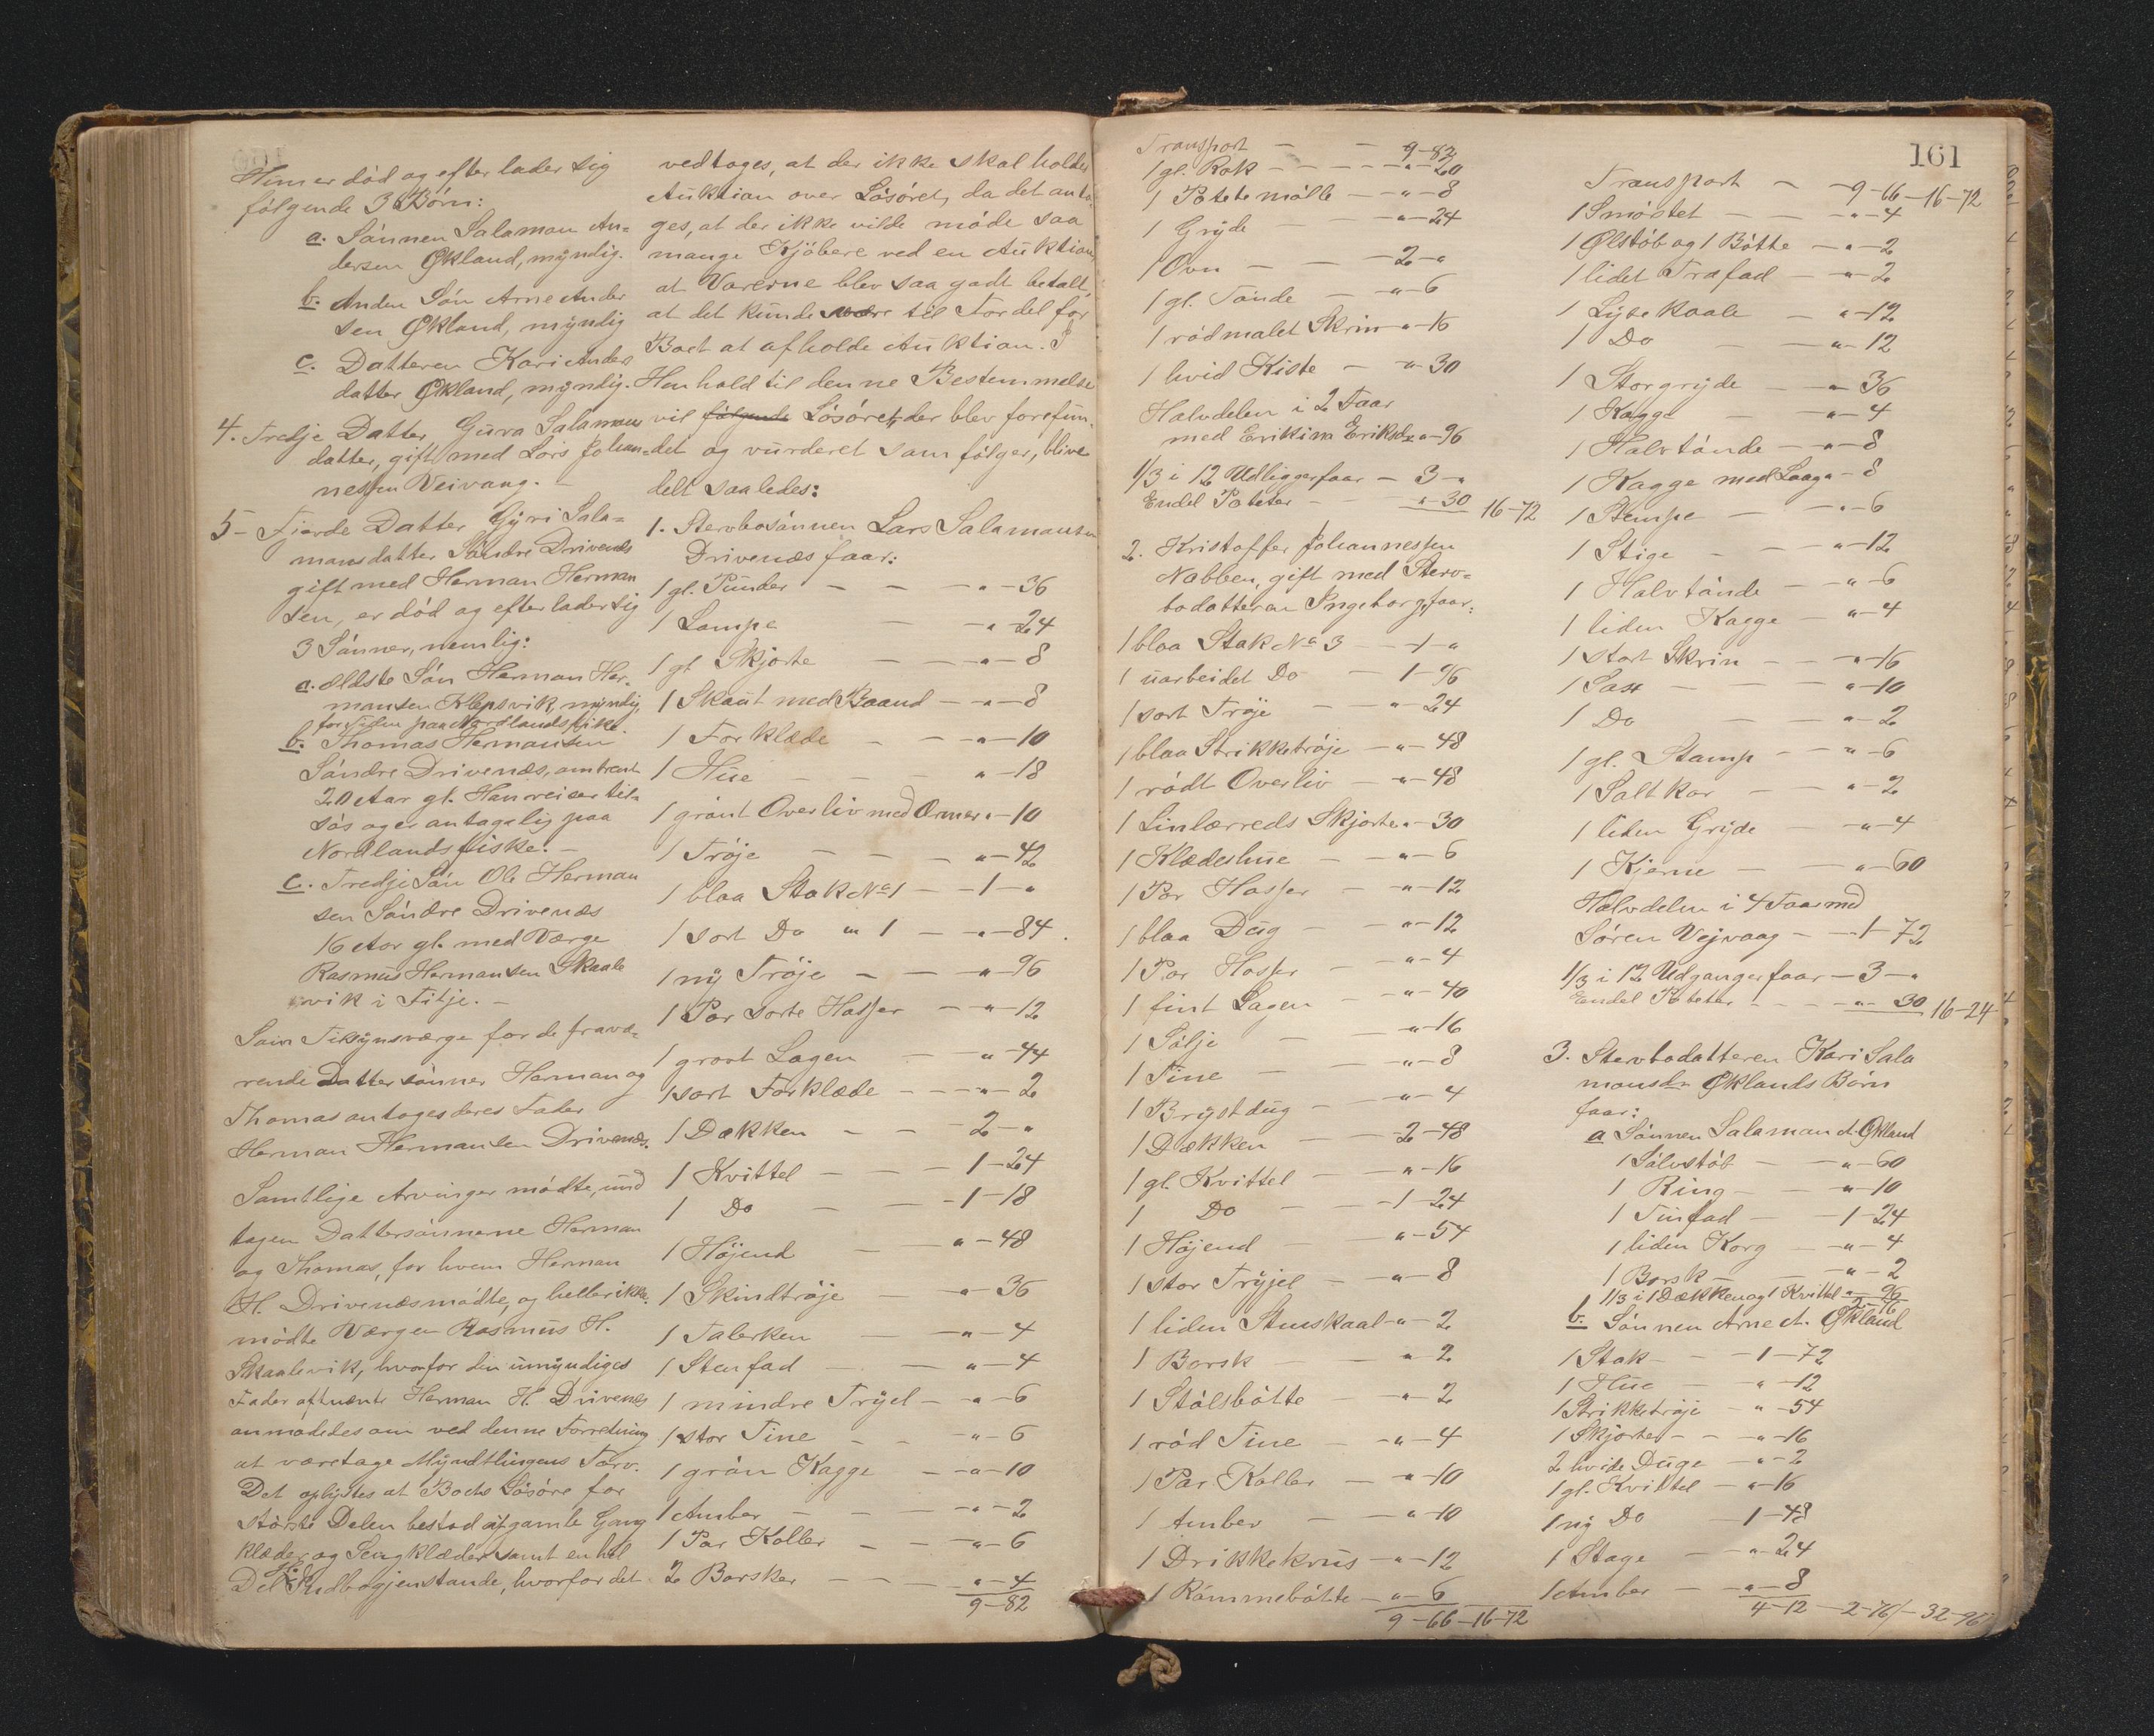 Hun er død og efterlader sig
følgende 3 Børn:
a. Sønnen Salamon An=
dersen Økland, myndig.
b. Anden Søn Arne Ander
sen Økland, myndig
c. Datteren Kari Anders
datter Økland, myndig.
4. Tredje Datter Guro Salamons
datter, gift med Lars Johan=
nessen Veivaag. -
5- Fjerde Datter Gyri Sala=
monsdatter Søndre Drivenes
gift med Herman Herman
sen, er død og efterlader sig
3 Sønner, nemlig:
a. ældste Søn Herman Her=
mansen Klepsvik, myndig,
for Tiden paa Nordlandsfiske.
b. Thomas Hermansen
Søndre Drivenæs, omtrent
20 Aar gl. Han reiser til=
søs og er antagelig paa
Nordlandsfiske. -
c. Tredje Søn Ole Herman
sen Søndre Drivenæs
16 Aar gl. med Værge
Rasmus Hermansen Skaale
vik i Fitje. -
Som Tilsynsværge for de fravæ=
rende Dattersønner Herman og
Thomas antoges deres Fader
Herman Hermansen Drivenæs.
Samtlige Arvinger mødte, und
tagen Dattersønnerne Herman
og Thomas, for hvem Herman
H. Drivenæs mødte, og heller ikke
mødte Værgen Rasmus H.
Skaalevik, hvorfor den umyndiges
Fader oftnævnte Herman H. Drivenes
anmodedes om ved denne Forretning
at varetage Myndtlingens Tarv.
Det oplystes at Boets Løsøre for
største Delen bestod af gamle Gang
klæder og Sengklæder samt en hel
Del Husbogjenstande, hvorfor det
vedtoges, at der ikke skal holdes
Auktion over Løsøret, da det anto
ges, at der ikke vilde møde saa
mange Kjøbere ved en Auktion,
at Varerne blev saa godt betalt,
at det kunde være til Fordel for
Boet at afholde Auktion. I
Henhold til denne Bestemmelse
vil følgende Løsøret, der blev forefun=
det og vurderet som følger, blive
delt saaledes:
1. Stervbosønnen Lars Salamonsen
Drivenæs faar:
1 gl. Punder - - - " - 36
1 Lampe - - " - 24
1 gl Skjorte - - " - 8
1 Skaut med Baand - - " - 8
1 Forklæde - - " - 10
1 Hue - - - " - 18
1 grønt Overliv med Ormer " - 10
1 Trøje - - - " - 42
1 blaa Stak No 1 - - 1 - "
1 sort Do " 1 - - " - 84
1 ny Trøje - - " - 96
1 Par sorte Hosser - - " - 12
1 grovt Lagen - " - 44
1 sort Forklæde - - - " - 2
1 Dækken - - 2 - "
1 Kvittel - - - 1 - 24
1 Do - - - 1 - 18
1 Højend - " - 48
1 Skindtrøje - - " - 36
1 Talerken - - " - 4
1 Stenfad - - " - 4
1 mindre Trýel - - " - 6
1 stor Tine - - " - 6
1 grøn Kagge - - " - 10
1 Amber - - - " - 2
1 Par Koller - - " - 6
2 Borsker - - - " - 4
9 - 82
Transport - - 9 - 82
1 gl. Rok - - - " - 20
1 Potetemølle - - " - 8
1 Gryde - - " - 24
1 Ovn - - - 2 - "
1 gl. Tønde - " - 6
1 rødmalet Skrin " - 16
1 hvid Kiste - - " - 30
Halvdelen i 2 Faar
med Erikine Eriksdr " - 96
1/3 i 12 Udliggerfaar - 3 - "
Endel Poteter - - " - 30 16 - 72
2. Kristoffer Johannessen
Nabben, gift med Sterv=
bodatteren Ingeborg, faar:
1 blaa Stak No 3 - 1 - "
1 uarbeidet Do - 1 - 96
1 sort Trøje - " - 24
1 blaa Strikketrøje - " - 48
1 rødt Overliv - " - 48
1 Linlærreds Skjorte " - 30
1 Klædeshue - - " - 6
1 Par Hosser - " - 12
1 blaa Dug - - " - 12
1 Par Hosser - " - 4
1 fint Lagen - " - 40
1 Sølje - - " - 16
1 Tine - - " - 8
1 Brystdug - - " - 4
1 Dækken - - 2 - 48
1 gl. Kvittel - - " - 16
1 Do - - 1 - 24
1 Højend - " - 54
1 stor Trýjel - - " - 8
1 liden Stuskaal - " - 2
1 Borsk - " - 2
1 Stølsbøtte - " - 2
1 rød Tine - - " - 4
1 Par Koller - - " - 10
1 Amber - - " - 10
1 Drikkekrus - " - 12
1 Rømmebøtte - " - 6
9 - 66 - 16 - 72
161
Transport - - 9 - 66 - 16 - 72
1 Smørstet - - - " - 4
1 Ølstøb og 1 Bøtte - " - 2
1 lidet Træfad - " - 2
1 Lysekaale - " - 12
1 Do - " - 12
1 Storgryde - " - 36
1 Kagge - " - 4
1 Halvtønde - " - 8
1 Kagge med Laag " - 8
1 Stempe - - " - 6
1 Stige - - " - 12
1 Halvtønde - - " - 6
1 liden Kagge - " - 4
1 stort Skrin - - " - 16
1 Sax - - " - 10
1 Do - " - 2
1 gl. Stamp - - " - 6
1 Saltkar - - " - 2
1 liden Gryde - " - 4
1 Kjerne - - " - 60
Halvdelen i 4 Faar med
Søren Vejvaag - - 1 - 72
1/3 i 12 Udgangerfaar - 3 - "
Endel Poteter - - - " - 30 16 - 24
3. Stervbodatteren Kari Sala
monsdr Øklands Børn
faar:
a Sønnen Salamon A. Økland
1 Sølvstøb - " - 60
1 Ring - - " - 10
1 Tinfad - - 1 - 24
1 liden Korg - " - 4
1 Borsk - - " - 2
1/3 i 1 Dækken og 1 Kvittel " - 96
2 - 76
b. Sønnen Arne A. Økland
1 Stak - - 1 - 72
1 Hue - " - 12
1 Strikketrøje - " - 54
1 Skjorte - - " - 16
2 hvide Duge - " - 2
1 gl. Kvittel - " - 16
1 ny Do - 1 - 48
1 Stage - " - 24
1 Amber - " - 8
4 - 12 - 2 - 76 - 32 - 96